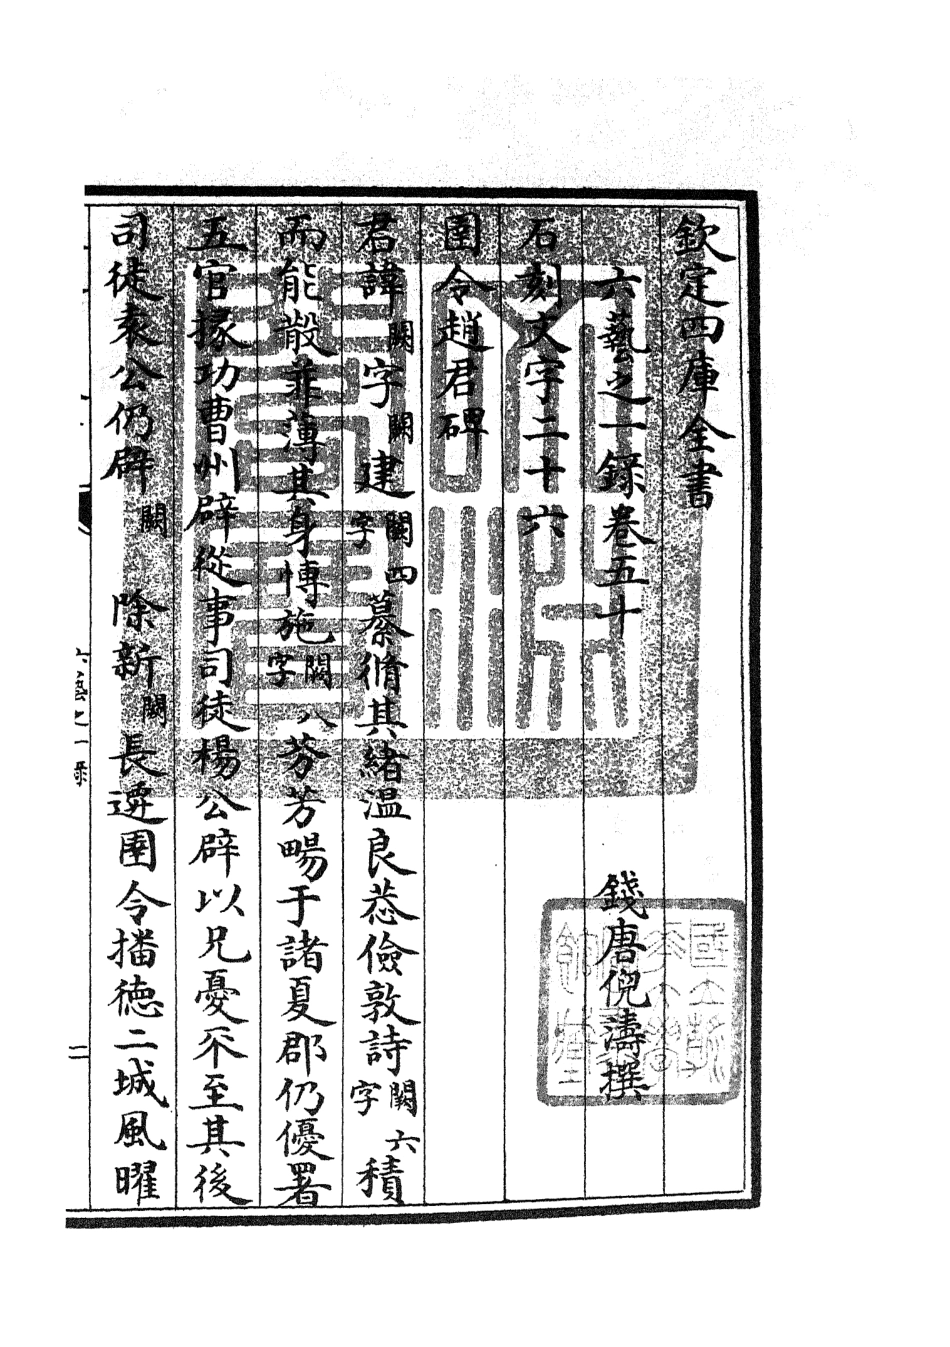 欽定四庫全書
六藝之一錄卷五十
錢唐倪濤撰
石刻文字二十六
圉令趙君碑
君諱闕字闕建闕四字纂脩其緒溫良恭儉敦詩闕六字積
而能散菲薄其身博施闕八字芬芳暢于諸夏郡仍優署
五官掾功曹州辟從事司徒楊公辟以兄憂不至其後
司徒袁公仍辟闕除新闕長遷圉令播德二城風曜
六藝之一錄